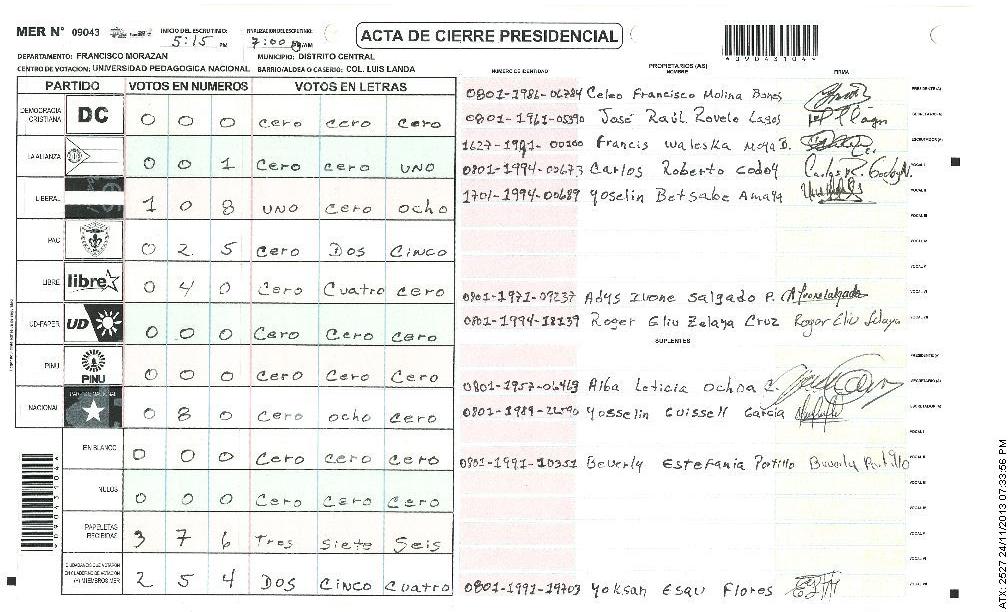 MER N° 09043 INICIO DEL ESCRUTINIO: 5:15 PM FINALIZACION DEL ESCRUTINIO: 7:00 PM/AM
ACTA DE CIERRE PRESIDENCIAL
DEPARTAMENTO: FRANCISCO MORAZAN MUNICIPIO: DISTRITO CENTRAL
CENTRO DE VOTACION: UNIVERSIDAD PEDAGOGICA NACIONAL BARRIO/ALDEA O CASERIO: COL. LUIS LANDA
PARTIDO VOTOS EN NUMEROS VOTOS EN LETRAS
DEMOCRACIA CRISTIANA DC 0 0 0 cero cero cero
LA ALIANZA 0 0 1 cero cero uno
LIBERAL 1 0 8 uno cero ocho
PAC 0 2 5 cero Dos cinco
LIBRE libre 0 4 0 cero cuatro cero
UD-FAPER UD 0 0 0 cero cero cero
PINU PINU 0 0 0 cero cero cero
NACIONAL 0 8 0 cero ocho cero
EN BLANCO 0 0 0 cero cero cero
NULOS 0 0 0 cero cero cero
PAPELETAS RECIBIDAS 3 7 6 Tres siete seis
CIUDADANOS QUE VOTARON EN CUADERNO DE VOTACION (+) MIEMBROS MER 2 5 4 Dos cinco cuatro
NUMERO DE IDENTIDAD PROPIETARIOS (AS) NOMBRE FIRMA
0801-1986-06784 Celeo Francisco Molina
0801-1961-05390 José Raúl Rovelo Lagos
Francis Waleska Moya B.
0801-1994-00673 Carlos Roberto Godoy
1701-1994-00689 Yoselin Betsabe Amaya
0801-1971-09237 Adys Ivone Salgado P.
0801-1994-18139 Roger Eliu Zelaya Cruz Roger Eliu Zelaya
SUPLENTES
0801-1957-06469 Alba Leticia Ochoa C.
Yosselin Guissell Garcia
0801-1991-10351 Beverly Estefania Portillo Beverly Portillo
0801-1991-19703 Yoksan Esau Flores
ATX 2527 24/11/2013 07:33:56 PM